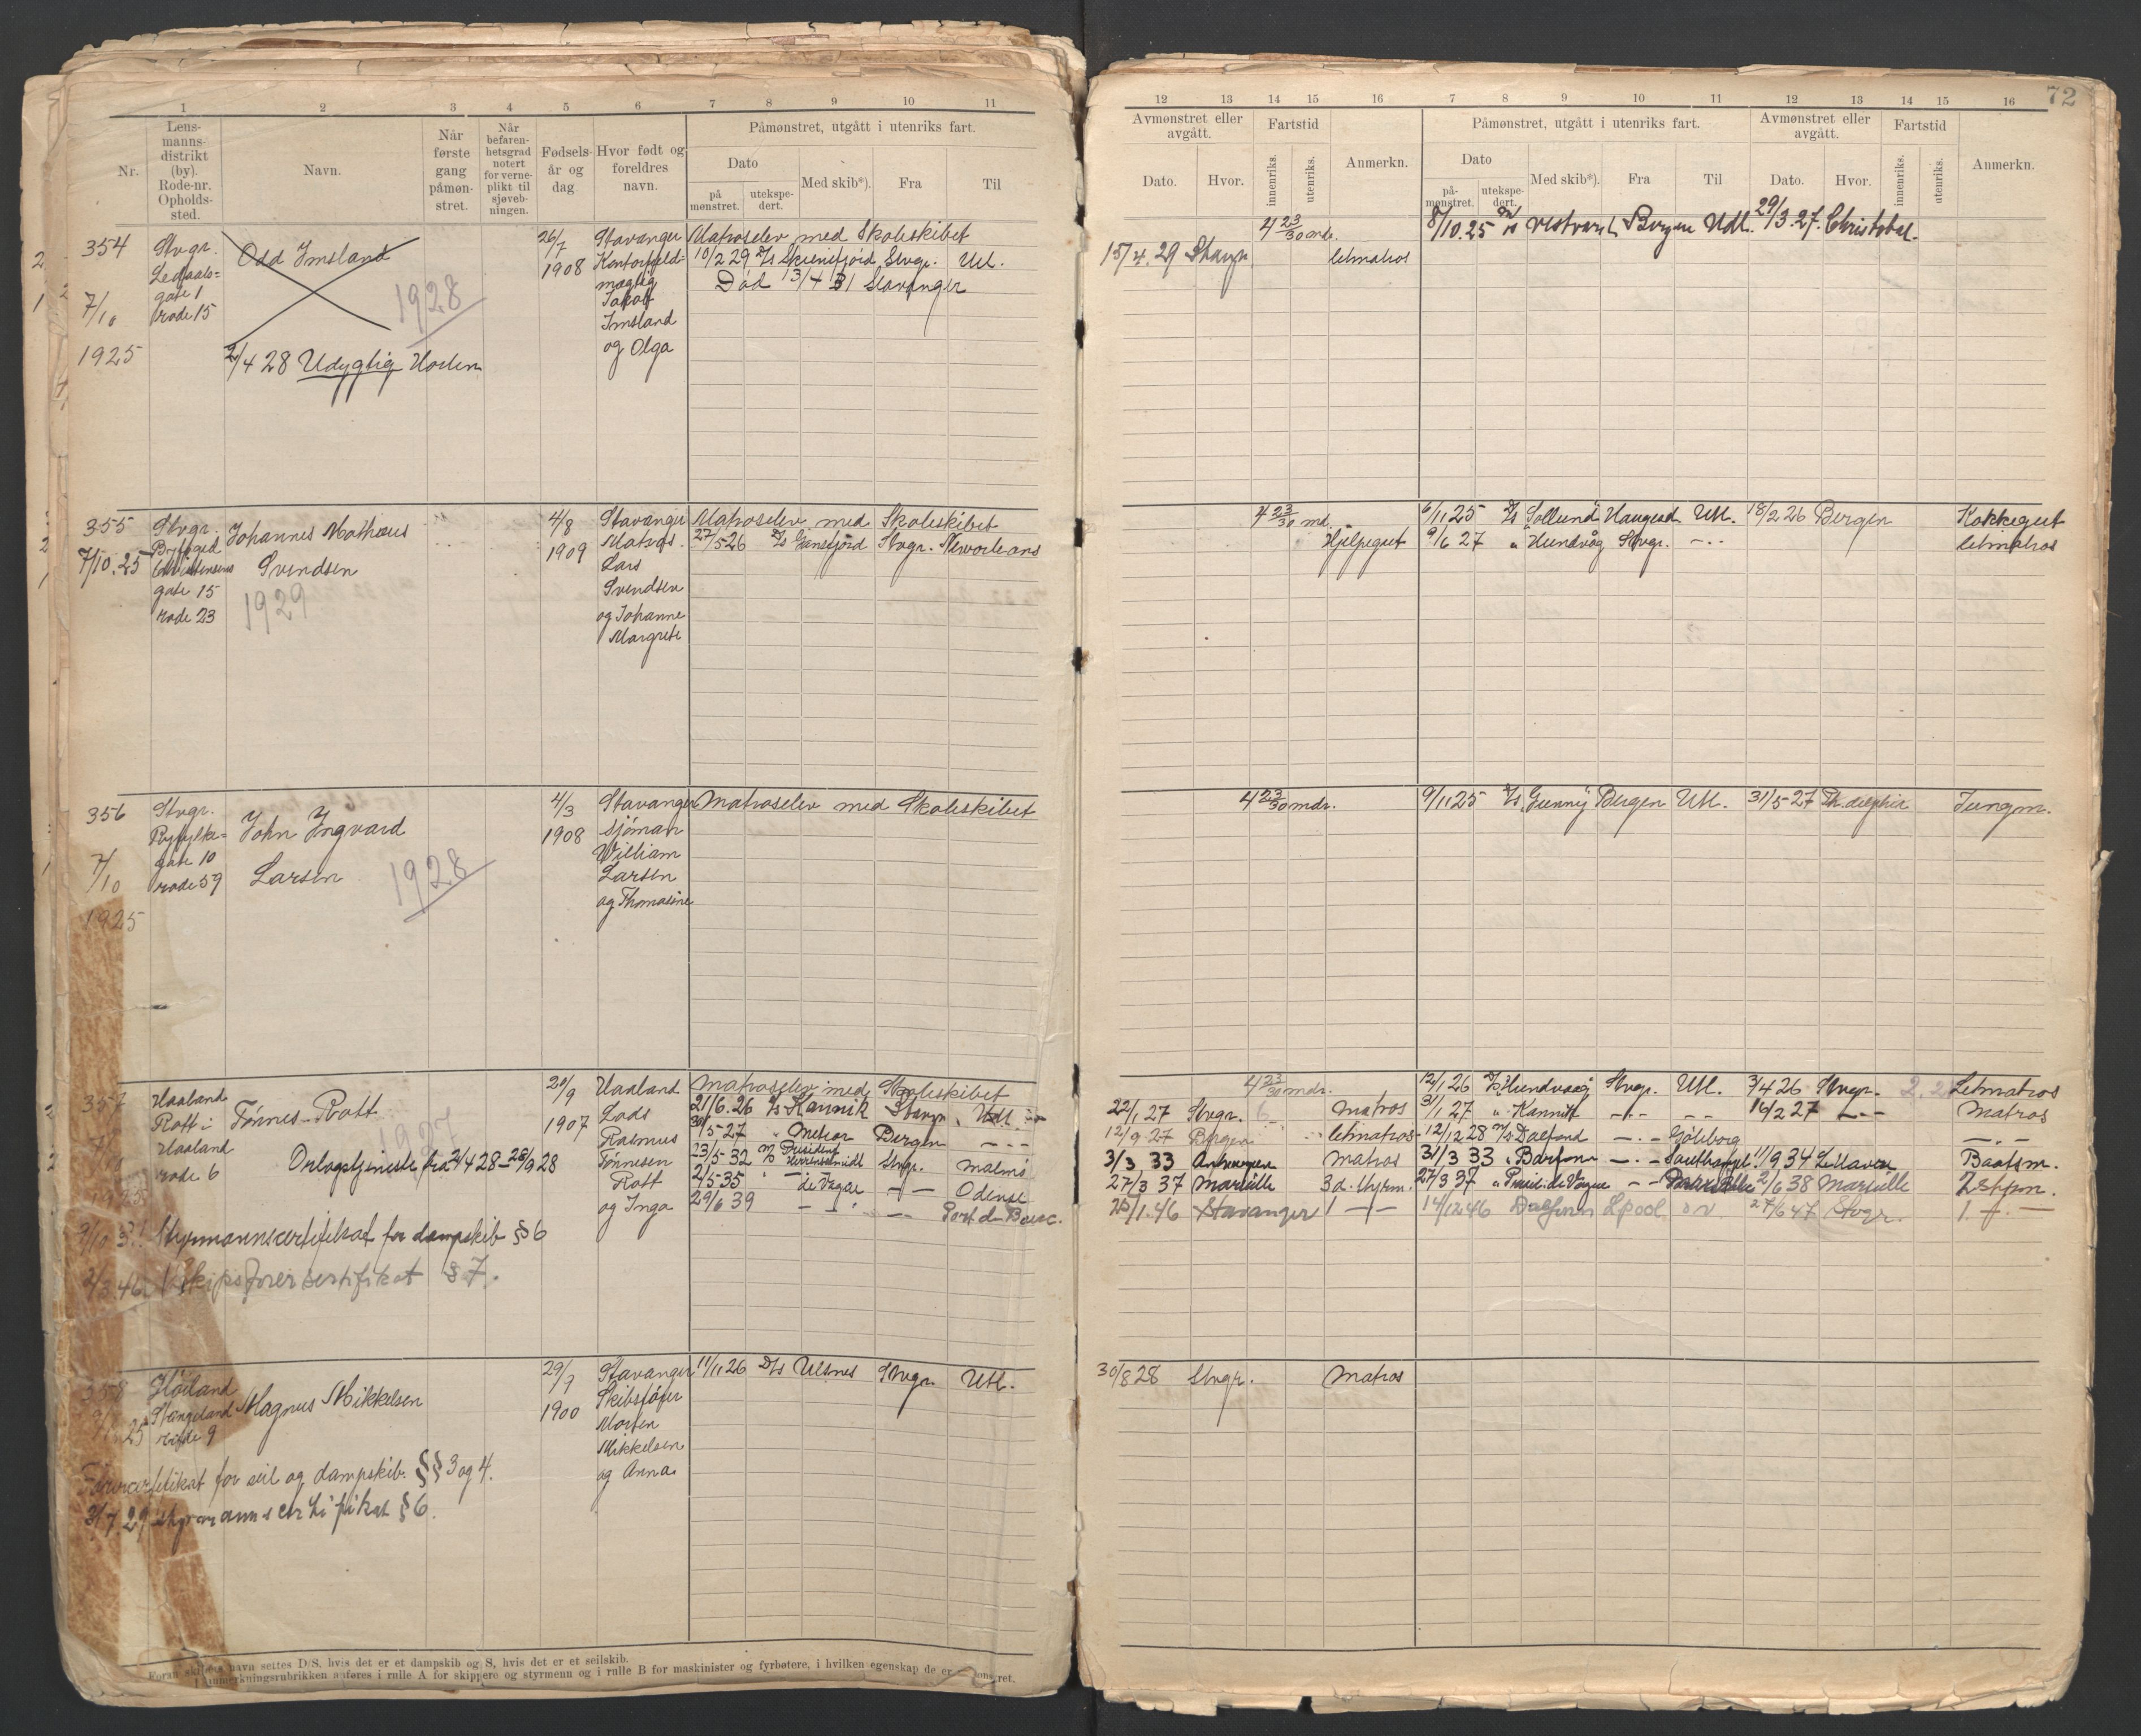 1 2 3 4 5 6 7 8 9 10 11
Nr.
Lens-
manns-
distrikt
(by).
Rode-nr.
Opholds-
sted.
Navn.
Når
første
gang
påmøn-
stret.
Når
befaren-
hetsgrad
notert
for verne-
plikt til
sjøveb-
ningen.
Fødsels-
år og
dag.
Hvor født og
foreldres
navn.
Påmønstret, utgått i utenriks fart.
Dato
på
mønstret.
utekspe-
dert.
Med skib*).
Fra
Til
354
7/10
1925
Stvgr.
Ledaals=
gate 1
rode 15
Odd Imsland
1928
2/4 28 Udygtig Horten
26/7
1908
Stavanger
Kontorfuld=
mægtig
Jakob
Imsland
og Olga
Matroselev med Skoleskibet
10/2 29 D/s Skiensfjord Stvgr. Utl.
Død 13/4 31 Stavanger
355
7/10.25
Stvgr.
Brigged
Christensens
gate 15
rode 23
Johannes Mathæus
Svendsen
1929
4/8
1909
Stavanger
Matros
Lars
Svendsen
og Johanne
Margrete
Matroselev med Skoleskibet
27/5 26 D/s Gansfjord Stvgr. Neworleans
356
7/10
1925
Stvgr.
Ryfylke=
gate 10
rode 59
John Ingvard
Larsen
1928
4/3
1908
Stavanger
Sjöman
William
Larsen
og Thomasine
Matroselev med Skoleskibet
357
Haaland
Rott i
Haaland
rode 6
Tønnes Rott
1927
Orlogstjeneste fra 2/4 28 – 28/9 28
20/9
1907
Haaland
Lods
Rasmus
Tønnesen
Rott
og Inga
Matroselev med Skoleskibet
21/6.26 D/s Kannik Stavgr. Utl.
30/5-27 " Meteor Bergen — " —
23/5-32 M/s President Herrenschmidt Stvgr. Malmö
2/5 35 " — de Vogue — " — Odense
29/6 39 — " — — " — Port de Bouc.
9/10 31 Styrmannscertifikat for dampskib § 6
2/3.46 Skipsförersertifikat § 7.
358
Høiland
Stangeland
rode 9
Magnus Mikkelsen
29/7
1900
Stavanger
Skibsfører
Morten
Mikkelsen
og Anna
11/11 26 D/s Ulsnes Stvgr. Utl.
Förercertifikat for seil og dampskib. §§ 3 og 4.
3/7.29 styrmannscertifikat § 6.
Foran skibets navn settes D/S, hvis det er et dampskib og S, hvis det er et seilskib.
I anmerkningsrubrikken anføres i rulle A for skippere og styrmenn og i rulle B for maskinister og fyrbøtere, i hvilken egenskap de er
72
12 13 14 15 16 7 8 9 10 11 12 13 14 15 16
Avmønstret eller
avgått.
Dato.
Hvor.
Fartstid
innenriks.
utenriks.
Anmerkn.
Påmønstret, utgått i utenriks fart.
Dato
på-
mønstret.
utekspe-
dert.
Med skib*).
Fra
Til
Avmønstret eller
avgått.
Dato.
Hvor.
Fartstid
innenriks.
utenriks.
Anmerkn.
4 23/30 mdr. 8/10.25 Bergen Utl. 29/3.27. Christobal.
15/4.29 Stavgr. letmatros
4 23/30 md. 6/11 25 D/s Sollund Haugesd. Utl. 18/2 26 Bergen Kokkegut
Hjelpegut 9/6 27 " Hundvåg Stvgr. — " — letmatros
4 23/30 mdr. 9/11 25 D/s Gunny Bergen Utl. 31/5-27 Jungm.
4 23/30 mdr. 12/1 26 D/s Hundvaag Stvgr. Utl. 3/4 26 Stvgr. Letmatros
22/1 27 Stvgr. Matros 31/1 27 " Kannik — " — — " — 14/2 27 — " — Matros
12/9-27 Bergen letmatros 12/12 28 M/s Dalfonn — " — Göteborg — " —
3/3 33 Antwerpen Matros 31/3 33 " Barfonn — " — Southampt. 11/9 34 Le Havre Baatsm.
27/3 37 Marseille 3d. styrm. 27/3 37 " Presid. de Vogue — " — 2/6 38 Marseille 2 styrm.
25/1.46 Stavanger 1 — " — 14/12 46 Dalfonn Lpool 27/6 47 Stvgr. 1. — " —
30/8 28 Stvgr. Matros